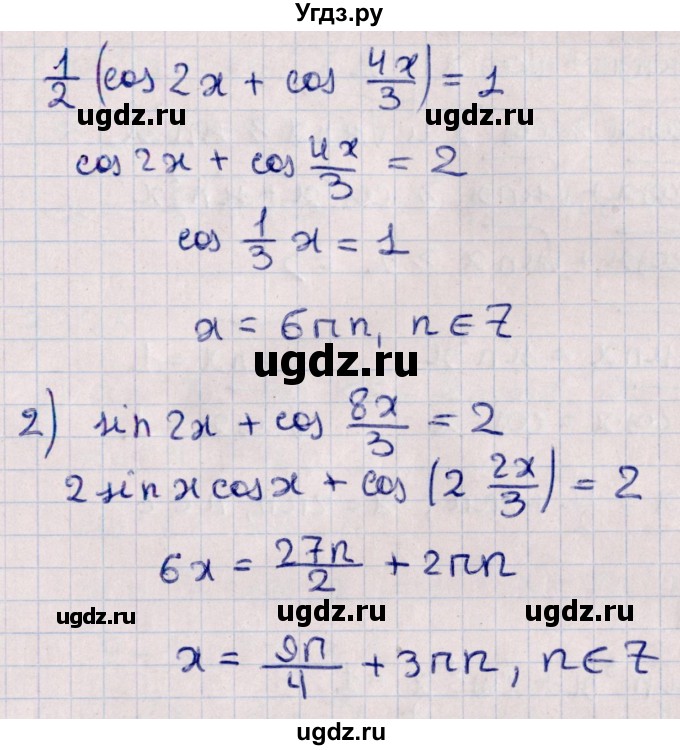 Угдз.ру
1/2 (cos 2x + cos 4x/3) = 1
ugdz.ru ugdz.ru
cos 2x + cos 4x/3 = 2
cos 1/3 x = 1
x = 6πn, n ∈ Z
ugdz.ru
2) sin 2x + cos 8x/3 = 2
2 sin x cos x + cos (2 2x/3) = 2
6x = 27π/2 + 2πn
ugdz.ru ugdz.ru ugdz.ru
x = 9π/4 + 3πn, n ∈ Z
ugdz.ru